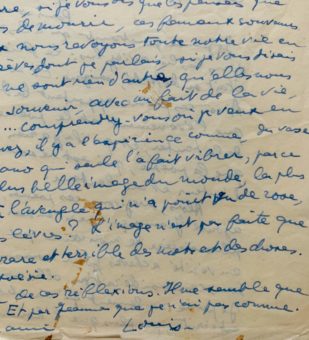 re, si je vous dis que les pensées que
s de mourir, ces fameux souvenirs
nous revoyons toute notre vie en
rêves dont je parlais, si je vous disais
ne sont rien d'autre qu'elles nous
souvenir avec un fait de la vie
... comprendrez-vous où je veux en
vez, il y a l'expérience comme du vase
ano qui seule l'a fait vibrer, parce
lus belle image du monde, la plus
l'aveugle qui n'a point vu de roses,
s lèvres ? L'image n'est pas faite que
rare et terrible des mots et des choses.
poésie.
de ces réflexions. Il me semble que
Et par Jeanne que je n'ai pas comme
ami
Louis